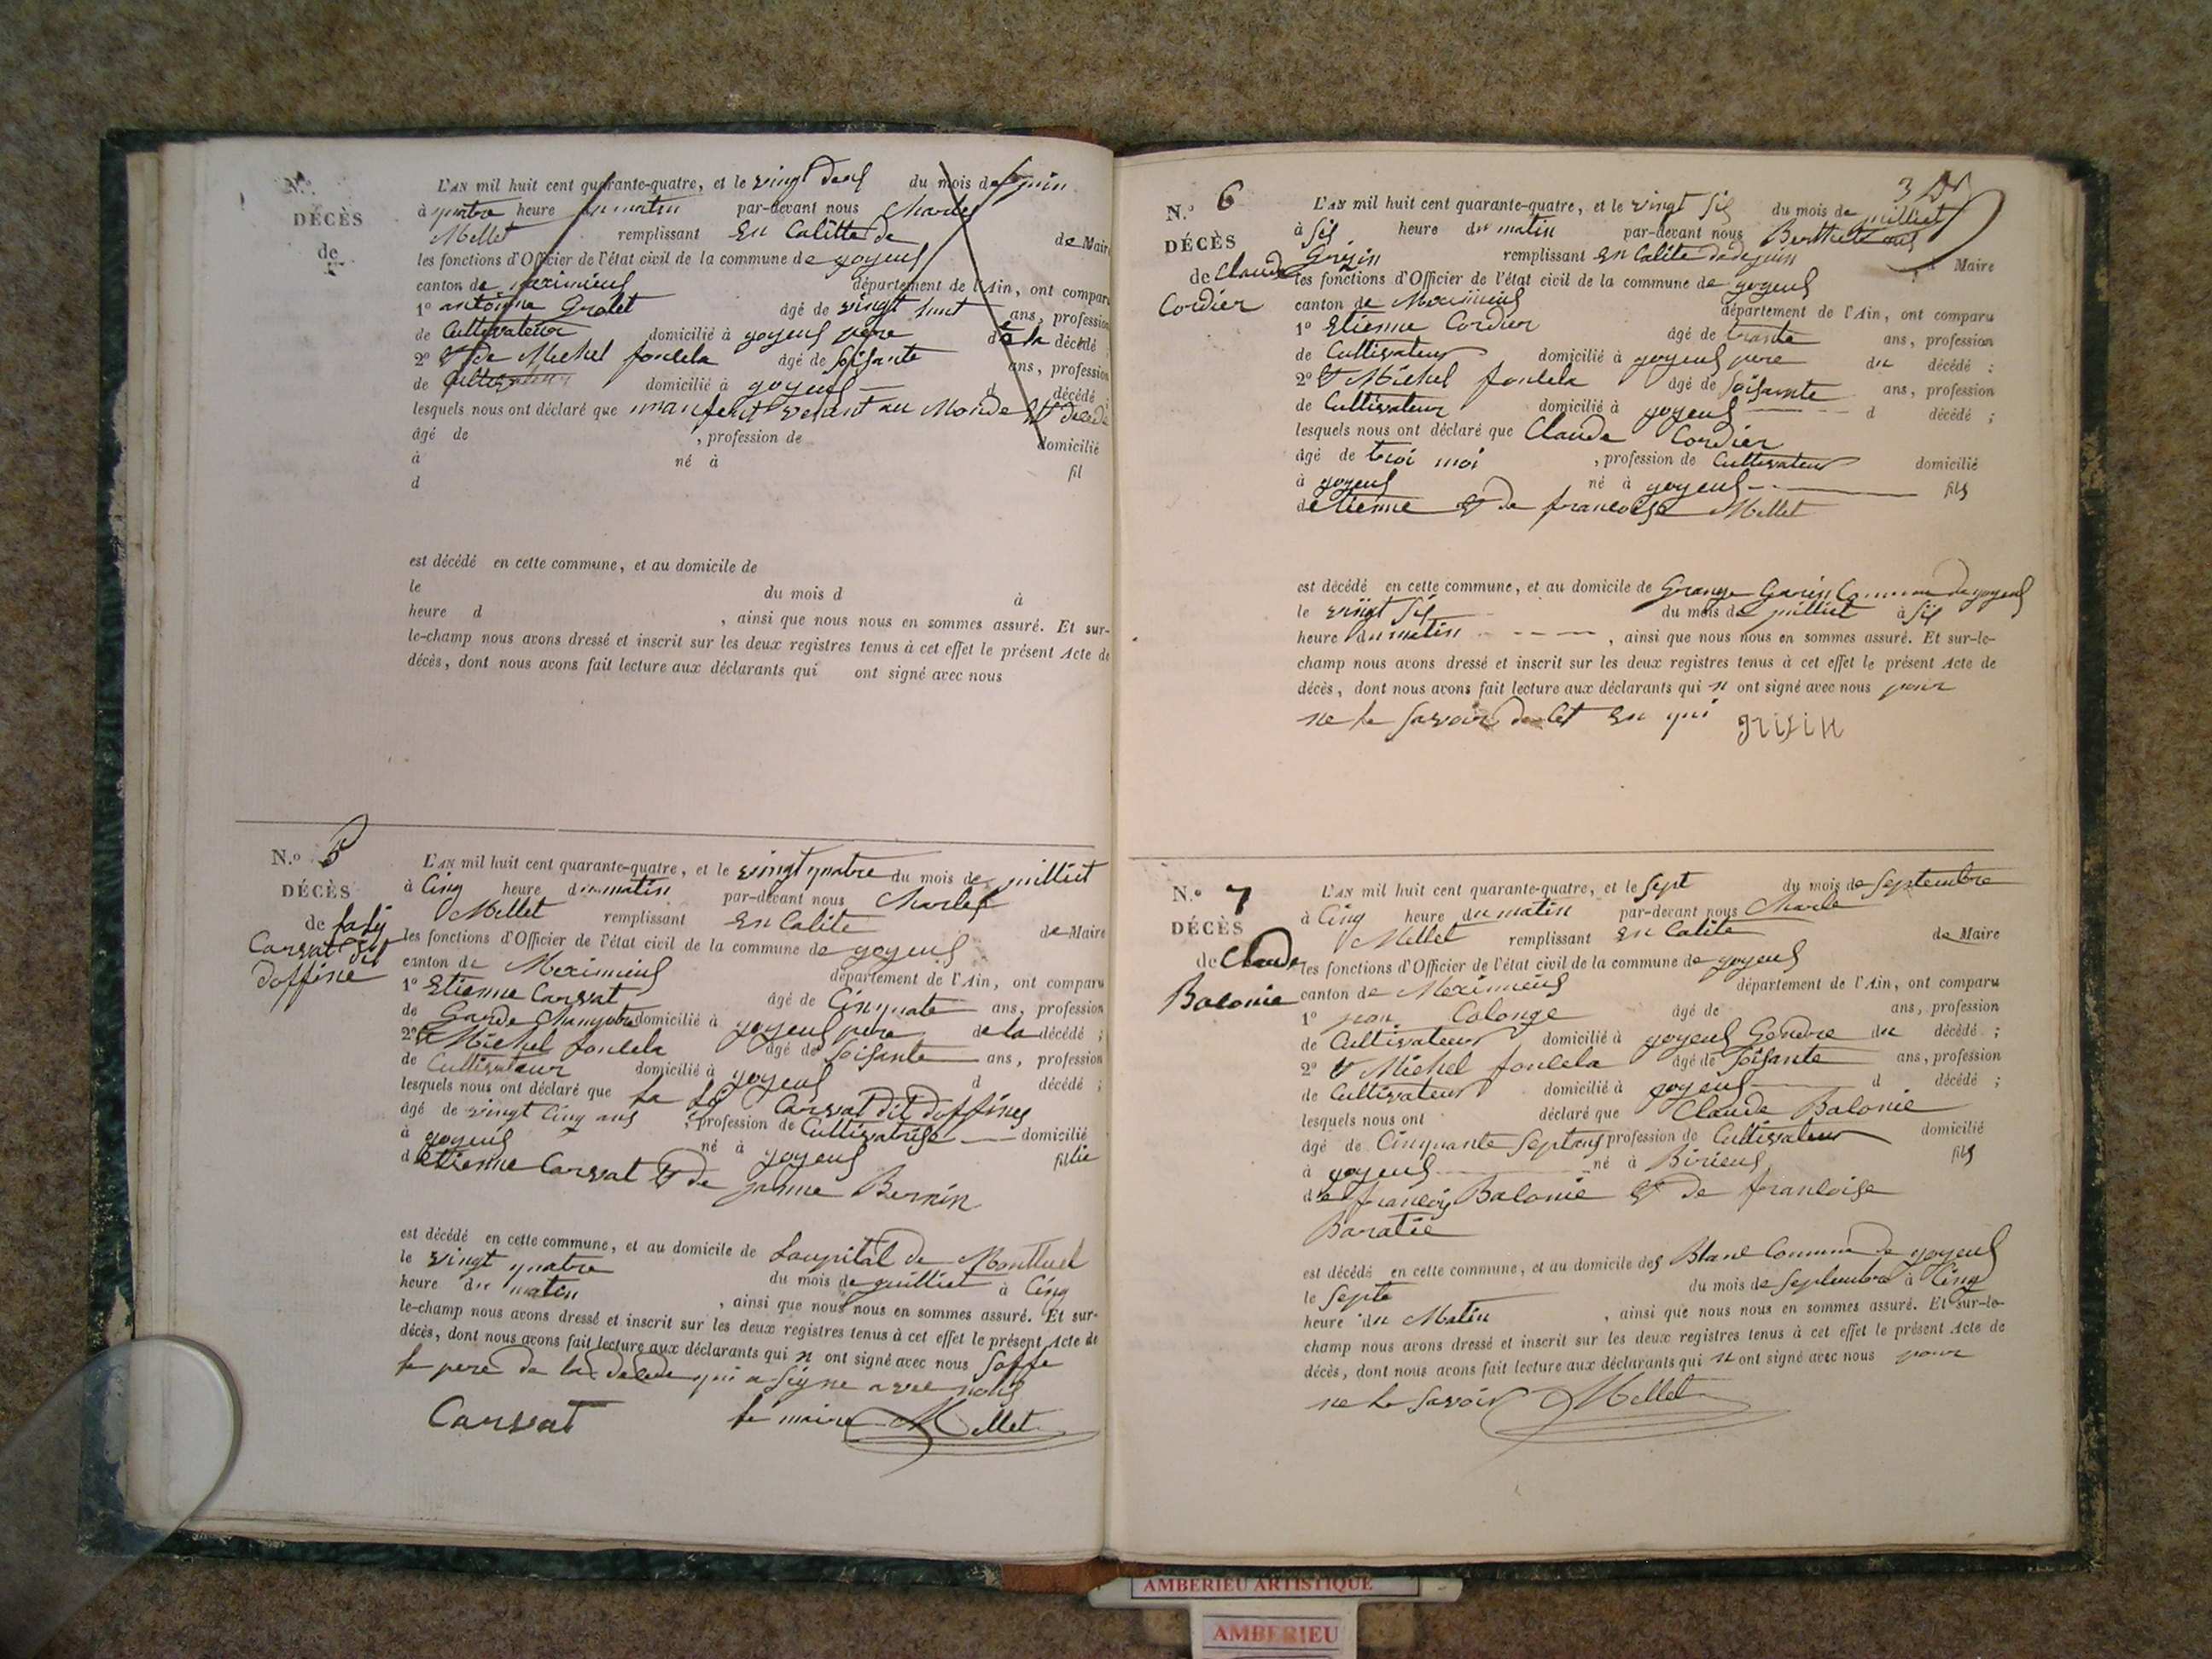 N.o
DÉCÈS
de
L'AN mil huit cent quarante-quatre, et le vingt deux du mois de juin
à quatre heure du matin par-devant nous Charles
Mellet remplissant En Calitté de de Maire
les fonctions d'Officier de l'état civil de la commune de joyeux
canton de meximieux département de l'Ain, ont comparu
1o antoinne Grolet âgé de vingt huit ans, profession
de Cultivateur domicilié à joyeux père de la décédé ;
2o & de Michel fontela âgé de soisante ans, profession
de Cultivateur domicilié à joyeux d décédé ;
lesquels nous ont déclaré que unanfent venant au Monde Et décédé
âgé de , profession de domicilié
à né à fil
d
est décédé en cette commune, et au domicile de
le du mois d à
heure d , ainsi que nous nous en sommes assuré. Et sur-
le-champ nous avons dressé et inscrit sur les deux registres tenus à cet effet le présent Acte de
décès, dont nous avons fait lecture aux déclarants qui ont signé avec nous
N.o 5
DÉCÈS
de
Carvat dit
doffine
L'AN mil huit cent quarante-quatre, et le vingt quatre du mois de juilliet
à Cinq heure du matin par-devant nous Charles
Mellet remplissant En Calité de Maire
les fonctions d'Officier de l'état civil de la commune de joyeux
canton de Meximieux département de l'Ain, ont comparu
1o Etienne Carvat âgé de Cinquate ans, profession
de Garde Champetre domicilié à joyeux pere de la décédé ;
2o & Michel fontela âgé de soisante ans, profession
de Cultivateur domicilié à joyeux d décédé ;
lesquels nous ont déclaré que Carvat dit doffines
âgé de vingt Cinq ans , profession de Cultivatrise domicilié
à joyeux né à joyeux fillie
d Etienne Carvat & de janne Bernin
est décédé en cette commune, et au domicile de Laupital de Montluel
le vingt quatre du mois de guilliet à Cinq
heure du matin , ainsi que nous nous en sommes assuré. Et sur-
le-champ nous avons dressé et inscrit sur les deux registres tenus à cet effet le présent Acte de
décès, dont nous avons fait lecture aux déclarants qui n ont signé avec nous soffe
le pere de la décede qui a signe avec nous
Carvat le maire Mellet
N.o 6
DÉCÈS
de Claude
Cordier
L'AN mil huit cent quarante-quatre, et le vingt six du mois de juilliet
à six heure du matin par-devant nous
remplissant En Calité Maire
les fonctions d'Officier de l'état civil de la commune de joyeux
canton de Meximieux département de l'Ain, ont comparu
1o Etienne Cordier âgé de trante ans, profession
de Cultivateur domicilié à joyeux pere du décédé ;
2o & Michel fontela âgé de soisante ans, profession
de Cultivateur domicilié à joyeux d décédé ;
lesquels nous ont déclaré que Claude Cordier
âgé de troi moi , profession de Cultivateur domicilié
à joyeux né à joyeux fils
d etienne & de francoise Mellet
est décédé en cette commune, et au domicile de Grange Commune de joyeux
le vingt six du mois de juilliet à six
heure du matin , ainsi que nous nous en sommes assuré. Et sur-le-
champ nous avons dressé et inscrit sur les deux registres tenus à cet effet le présent Acte de
décès, dont nous avons fait lecture aux déclarants qui n ont signé avec nous pour
ne le savoir
N.o 7
DÉCÈS
de Claude
Balonie
L'AN mil huit cent quarante-quatre, et le sept du mois de septembre
à Cinq heure du matin par-devant nous Charle
Mellet remplissant En Calité de Maire
les fonctions d'Officier de l'état civil de la commune de joyeux
canton de Meximieux département de l'Ain, ont comparu
1o Colonge âgé de ans, profession
de Cultivateur domicilié à joyeux Gendre du décédé ;
2o & Michel fontela âgé de soisante ans, profession
de Cultivateur domicilié à joyeux d décédé ;
lesquels nous ont déclaré que Claude Balonie
âgé de Cinquante Sept ans profession de Cultivateur domicilié
à joyeux né à Birieux fils
de francois Balonie & de francoise
Baratie
est décédé en cette commune, et au domicile des Blanc Commune de joyeux
le septe du mois de septembre à Cinq
heure du Matin , ainsi que nous nous en sommes assuré. Et sur-le-
champ nous avons dressé et inscrit sur les deux registres tenus à cet effet le présent Acte de
décès, dont nous avons fait lecture aux déclarants qui n ont signé avec nous pour
ne le savoir Mellet
AMBERIEU ARTISTIQUE
AMBERIEU